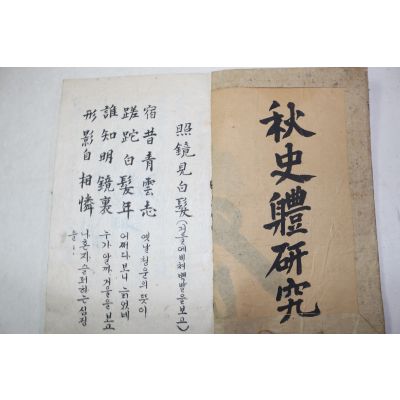 秋史體研究
照鏡見白髮(거울에비쳐백발을보고)
宿昔青雲志 옛날청운의뜻이
蹉跎白髮年 어쩌다보니늙었네
誰知明鏡裏 누가알까거울을보고
形影自相憐 나혼자슬퍼하는심정
을